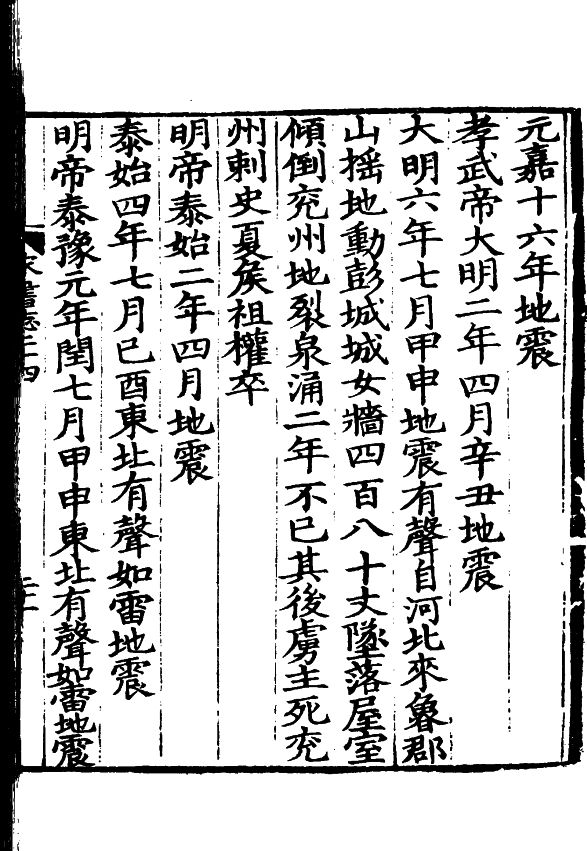 元嘉十六年地震
孝武帝大明二年四月辛丑地震
大明六年七月甲申地震有聲自河北來魯郡
山搖地動彭城城女牆四百八十丈墜落屋室
傾倒兖州地裂泉涌二年不已其後虜主死兖
州刺史夏矦祖權卒
明帝泰始二年四月地震
泰始四年七月巳酉東北有聲如雷地震
明帝泰豫元年閏七月甲申東北有聲如雷地震
宋書志二十四